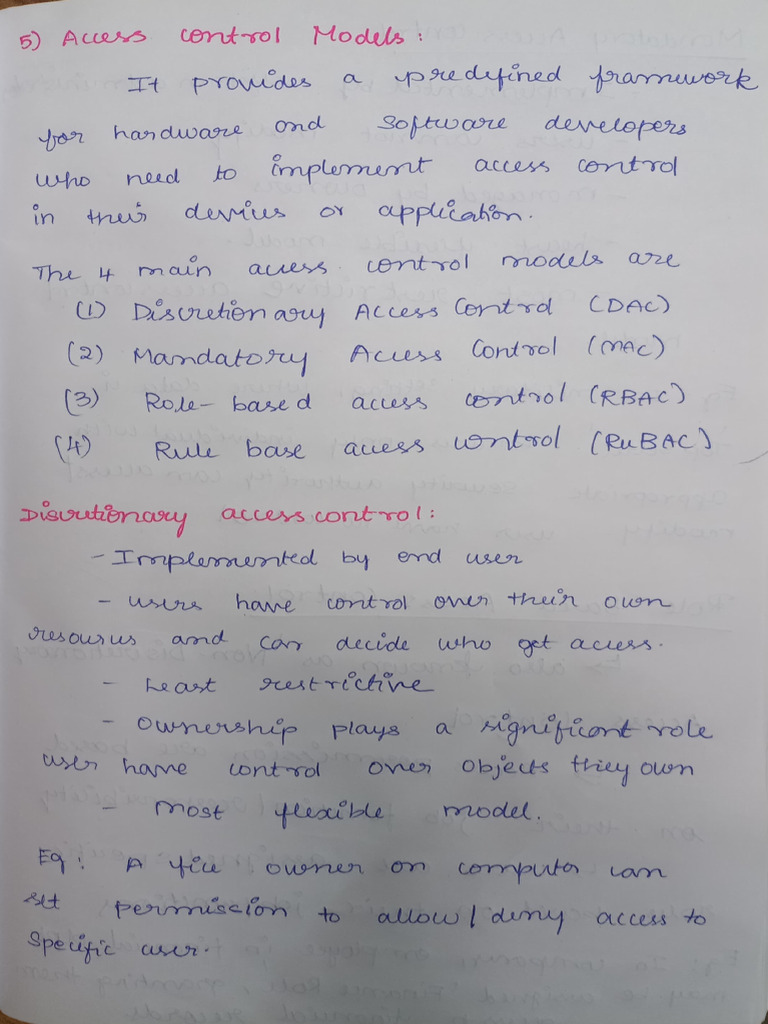 5) Access control Models:
It provides a predefined framework
for hardware and software developers
who need to implement access control
in their devices or application.
The 4 main access control models are
(1) Discretionary Access Control (DAC)
(2) Mandatory Access Control (MAC)
(3) Role-based access control (RBAC)
(4) Rule base access control (RuBAC)
Discretionary access control:
- Implemented by end user
- users have control over their own
resources and can decide who get access.
- Least restrictive
- Ownership plays a significant role
user have control over objects they own
- most flexible model.
Eg: A file owner on computer can
set permission to allow/deny access to
specific user.